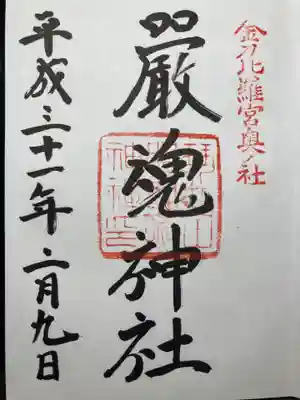 金刀比羅宮奥ノ社
嚴魂神社
平成三十一年二月九日